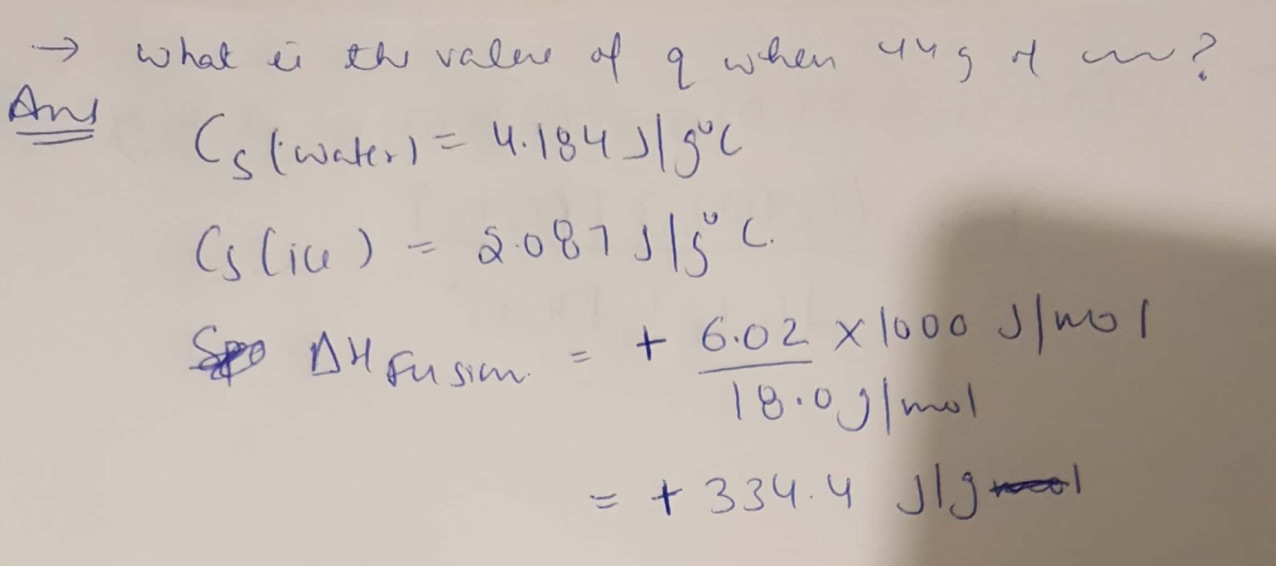 → What is the value of q when 44 g of ?
Ans
Cs (water) = 4.184 J/g°C
Cs (ice) = 2.087 J/g°C.
ΔH Fusion = + 6.02 × 1000 J/mol
18.0 g/mol
= + 334.4 J/g